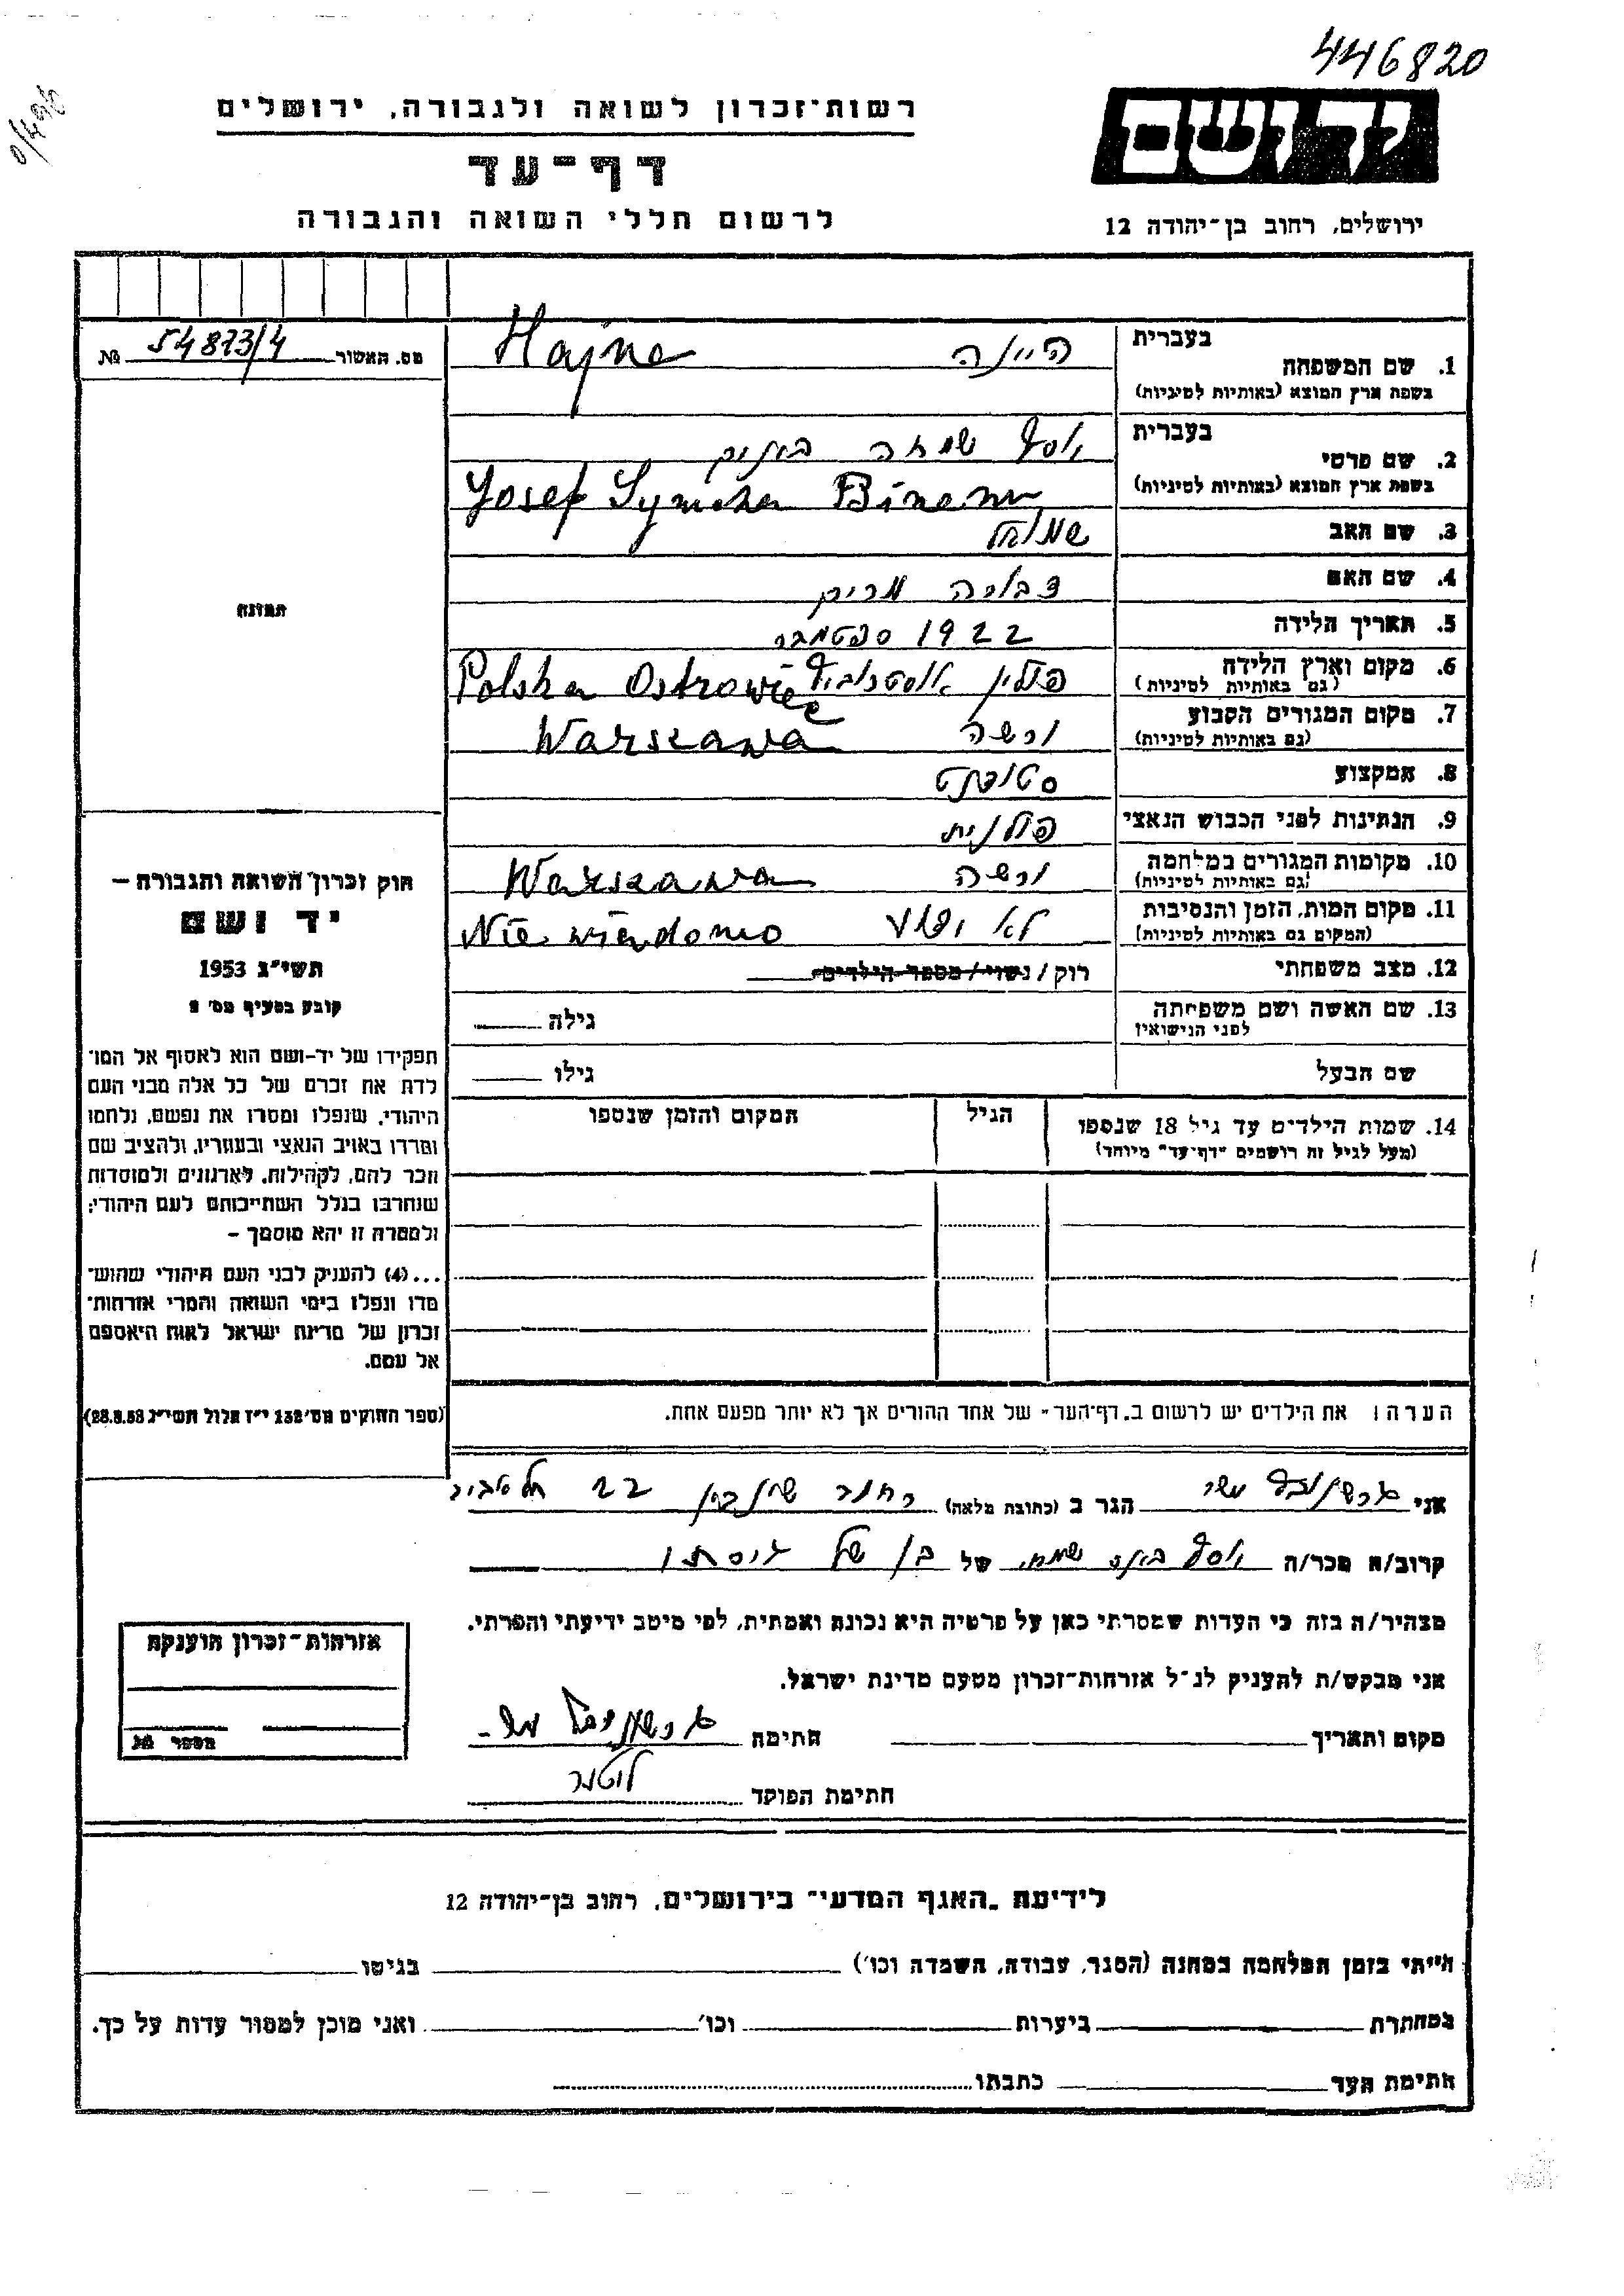 446820
רשות-זכרון לשואה ולגבורה, ירושלים
דף-עד
לרשום חללי השואה והגבורה
יד ושם
ירושלים, רחוב בן-יהודה 12
מס. האשור 54873/4 №
תמונה
חוק זכרון השואה והגבורה –
יד ושם
תשי"ג 1953
קובע בסעיף מס' 2
תפקידו של יד-ושם הוא לאסוף אל המו־
לדת את זכרם של כל אלה מבני העם
היהודי, שנפלו ומסרו את נפשם, נלחמו
ומרדו באויב הנאצי ובעוזריו, ולהציב שם
וזכר להם, לקהילות, לארגונים ולמוסדות
שנחרבו בגלל השתייכותם לעם היהודי;
ולמטרה זו יהא מוסמך –
...(4) להעניק לבני העם היהודי שהוש־
מדו ונפלו בימי השואה והמרי אזרחות־
זכרון של מדינת ישראל לאות היאספם
אל עמם.
(ספר החוקים מס' 132 י"ז אלול תשי"ג 28.8.53)
1. שם המשפחה
בעברית היינה
בשפת ארץ המוצא (באותיות לטיניות) Hajne
2. שם פרטי
בעברית יוסף שמחה בונים
בשפת ארץ המוצא (באותיות לטיניות) Yosef Symcha Binem
3. שם האב שמואל
4. שם האם מרים
5. תאריך הלידה 1922 ספטמבר
6. מקום וארץ הלידה פולין Polska Ostrowiec
(גם באותיות לטיניות)
7. מקום המגורים הקבוע ורשה Warszawa
(גם באותיות לטיניות)
8. המקצוע סטודנט
9. הנתינות לפני הכבוש הנאצי פולנית
10. מקומות המגורים במלחמה ורשה Warszawa
(גם באותיות לטיניות)
11. מקום המות, הזמן והנסיבות לא ידוע Nie wiadomo
(המקום גם באותיות לטיניות)
12. מצב משפחתי רווק / נשוי / מספר הילדים
13. שם האשה ושם משפחתה גילה
לפני הנישואין
שם הבעל גילו
14. שמות הילדים עד גיל 18 שנספו הגיל המקום והזמן שנספו
(מעל לגיל זה רושמים "דף-עד" מיוחד)
הערה: את הילדים יש לרשום ב"דף-העד" של אחד ההורים אך לא יותר מפעם אחת.
אני הגר ב (כתובת מלאה) רחוב 22 תל אביב
קרוב/ה מכר/ה יוסף שמחה של בן של גיסתו
מצהיר/ה בזה כי העדות שמסרתי כאן על פרטיה היא נכונה ואמתית, לפי מיטב ידיעתי והכרתי.
אני מבקש/ת להעניק לנ"ל אזרחות-זכרון מטעם מדינת ישראל.
מקום ותאריך חתימה
חתימת הפוקד
אזרחות-זכרון הוענקה
מספר №
לידיעת "האגף המדעי" בירושלים, רחוב בן-יהודה 12
הייתי בזמן המלחמה במחנה (הסגר, עבודה, השמדה וכו') בגיטו
במחתרת ביערות וכו' ואני מוכן למסור עדות על כך.
חתימת העד כתבתו